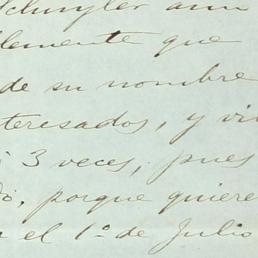 Schuyler aun
lemente que
de su nombre
teresados, y vi
3 veces, pues
, porque quiere
el 1º de Julio